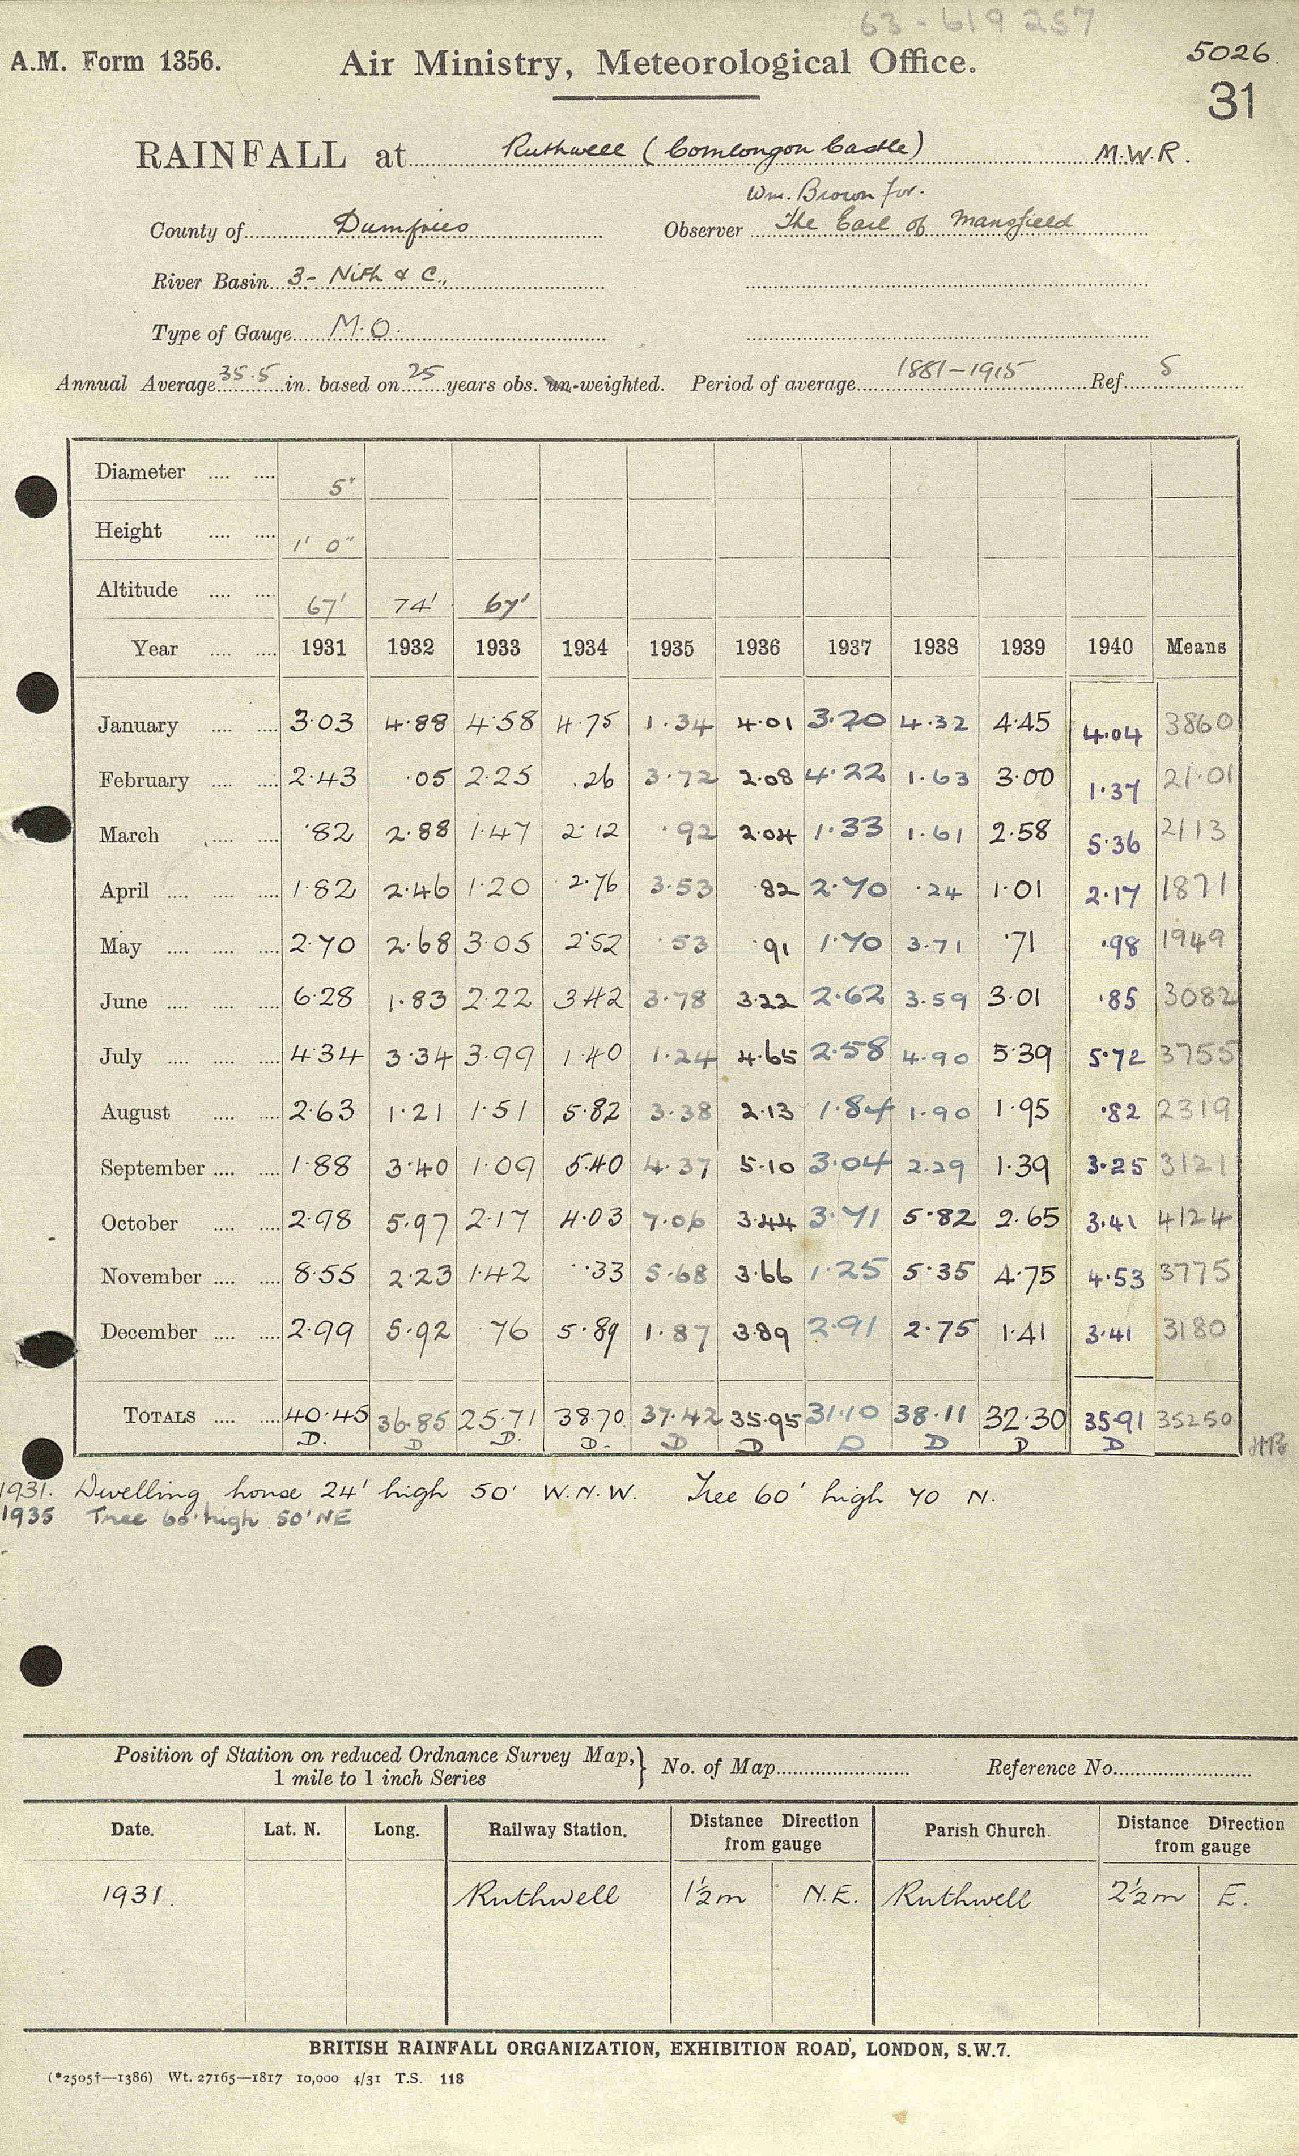 63-619257
A.M. Form 1356. Air Ministry, Meteorological Office. 5026
31
RAINFALL at Ruthwell (Comlongon Castle) M.W.R.
Wm. Brown for.
County of Dumfries Observer The Earl of Mansfield
River Basin 3- Nith & C.,
Type of Gauge M.O.
Annual Average 35.5 in. based on 25 years obs. un-weighted. Period of average 1881-1915 Ref. 5
Diameter 5"
Height 1' 0"
Altitude 67' 74' 67'
Year 1931 1932 1933 1934 1935 1936 1937 1938 1939 1940 Means
January 3.03 4.88 4.58 4.75 1.34 4.01 3.20 4.32 4.45 4.04 3860
February 2.43 .05 2.25 .26 3.72 2.08 4.22 1.63 3.00 1.37 21.01
March .82 2.88 1.47 2.12 .92 2.04 1.33 1.61 2.58 5.36 2113
April 1.82 2.46 1.20 2.76 3.53 .82 2.70 .24 1.01 2.17 1871
May 2.70 2.68 3.05 2.52 .53 .91 1.70 3.71 .71 .98 1949
June 6.28 1.83 2.22 3.42 3.78 3.22 2.62 3.59 3.01 .85 3082
July 4.34 3.34 3.99 1.40 1.24 4.65 2.58 4.90 5.39 5.72 3755
August 2.63 1.21 1.51 5.82 3.38 2.13 1.84 1.90 1.95 .82 2319
September 1.88 3.40 1.09 5.40 4.37 5.10 3.04 2.29 1.39 3.25 3121
October 2.98 5.97 2.17 4.03 7.06 3.44 3.71 5.82 2.65 3.41 4124
November 8.55 2.23 1.42 .33 5.68 3.66 1.25 5.35 4.75 4.53 3775
December 2.99 5.92 .76 5.89 1.87 3.89 2.91 2.75 1.41 3.41 3180
TOTALS 40.45 36.85 25.71 38.70 37.42 35.95 31.10 38.11 32.30 35.91 35250
D. D D. D. D D D D D D
1931. Dwelling house 24' high 50' W.N.W. Tree 60' high 70 N.
1935 Tree 60' high 50' NE
Position of Station on reduced Ordnance Survey Map, 1 mile to 1 inch Series } No. of Map Reference No.
Date. Lat. N. Long. Railway Station. Distance Direction from gauge Parish Church. Distance Direction from gauge
1931. Ruthwell 1½m N.E. Ruthwell 2½m E.
BRITISH RAINFALL ORGANIZATION, EXHIBITION ROAD, LONDON, S.W.7.
(*2505†—1386) Wt. 27165—1817 10,000 4/31 T.S. 118